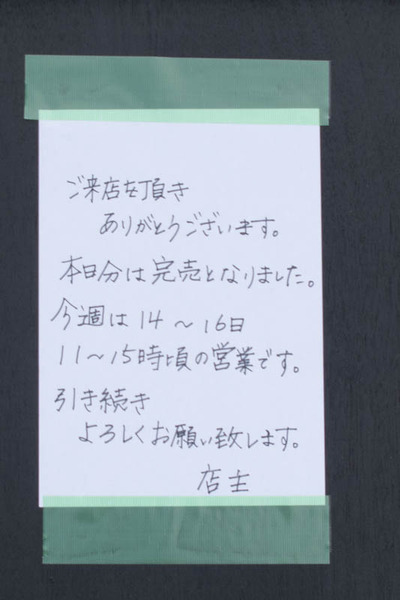 ご来店を頂き
ありがとうございます。
本日分は完売となりました。
今週は14～16日
11～15時頃の営業です。
引き続き
よろしくお願い致します。
店主